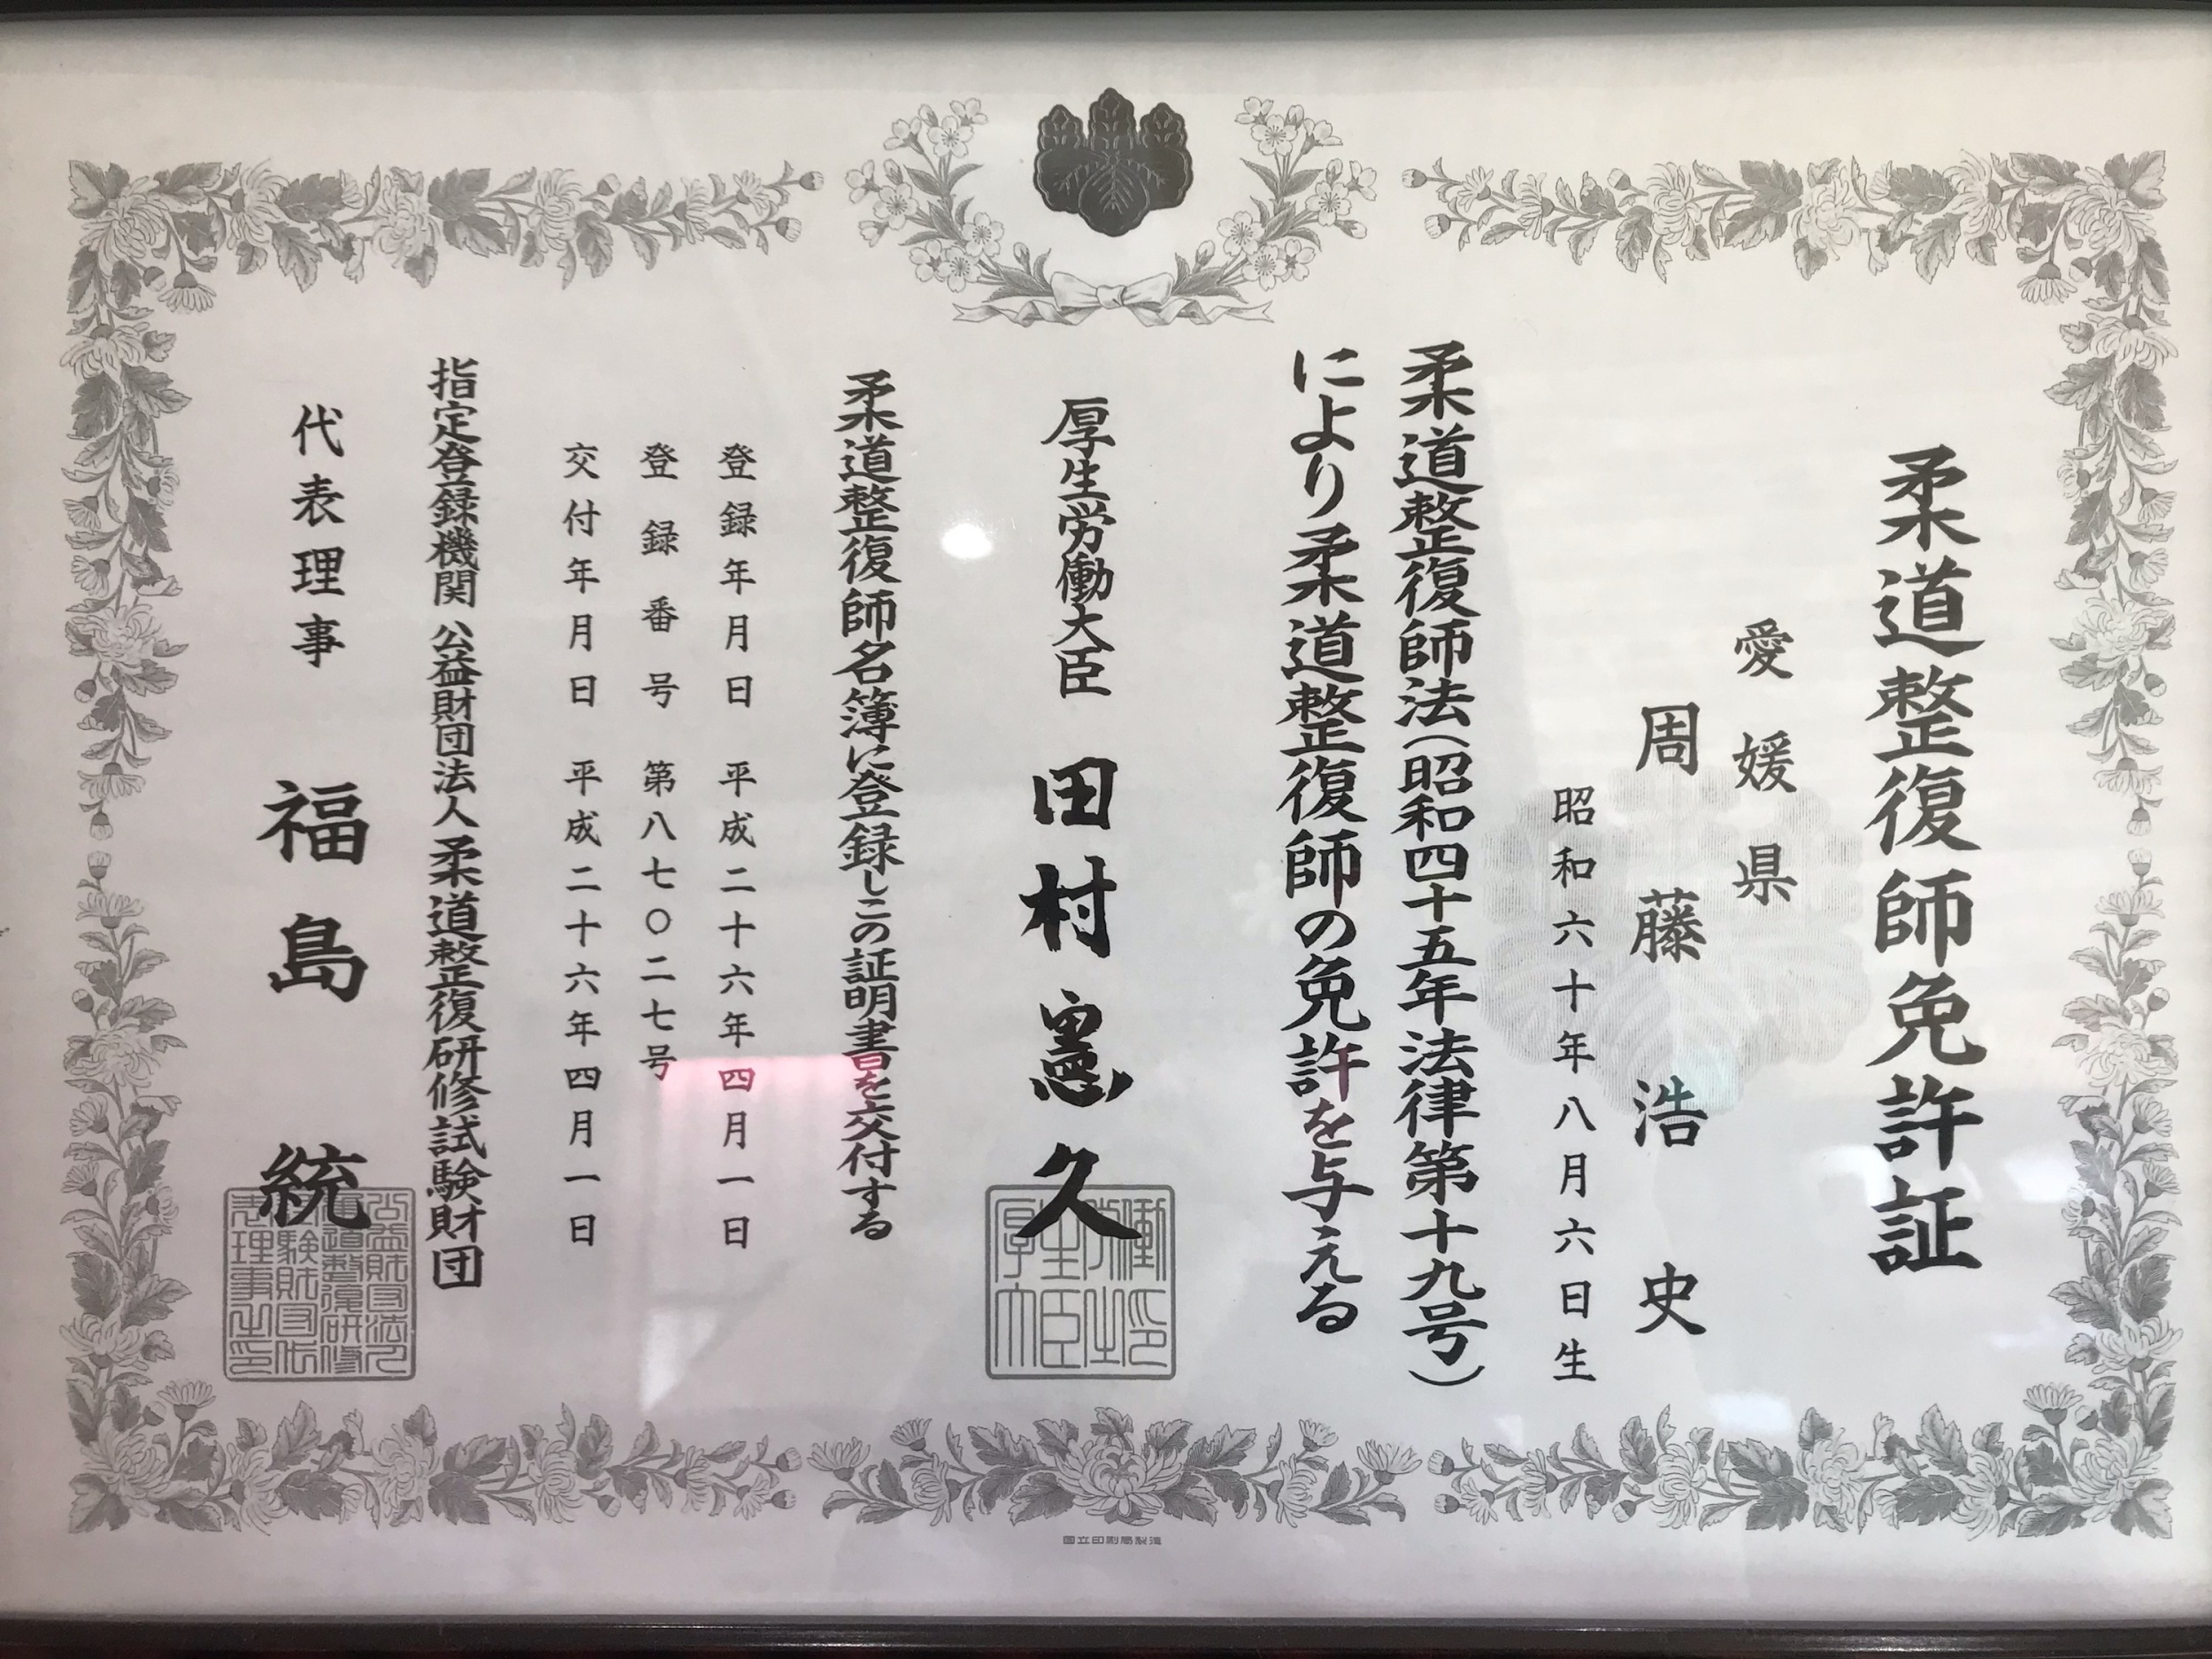 柔道整復師免許証
愛媛県
周藤浩史
昭和六十年八月六日生
柔道整復師法(昭和四十五年法律第十九号)
により柔道整復師の免許を与える
厚生労働大臣 田村憲久
柔道整復師名簿に登録しこの証明書を交付する
登録年月日 平成二十六年四月一日
登録番号 第八七〇二七号
交付年月日 平成二十六年四月一日
指定登録機関 公益財団法人 柔道整復研修試験財団
代表理事 福島統
国立印刷局製造